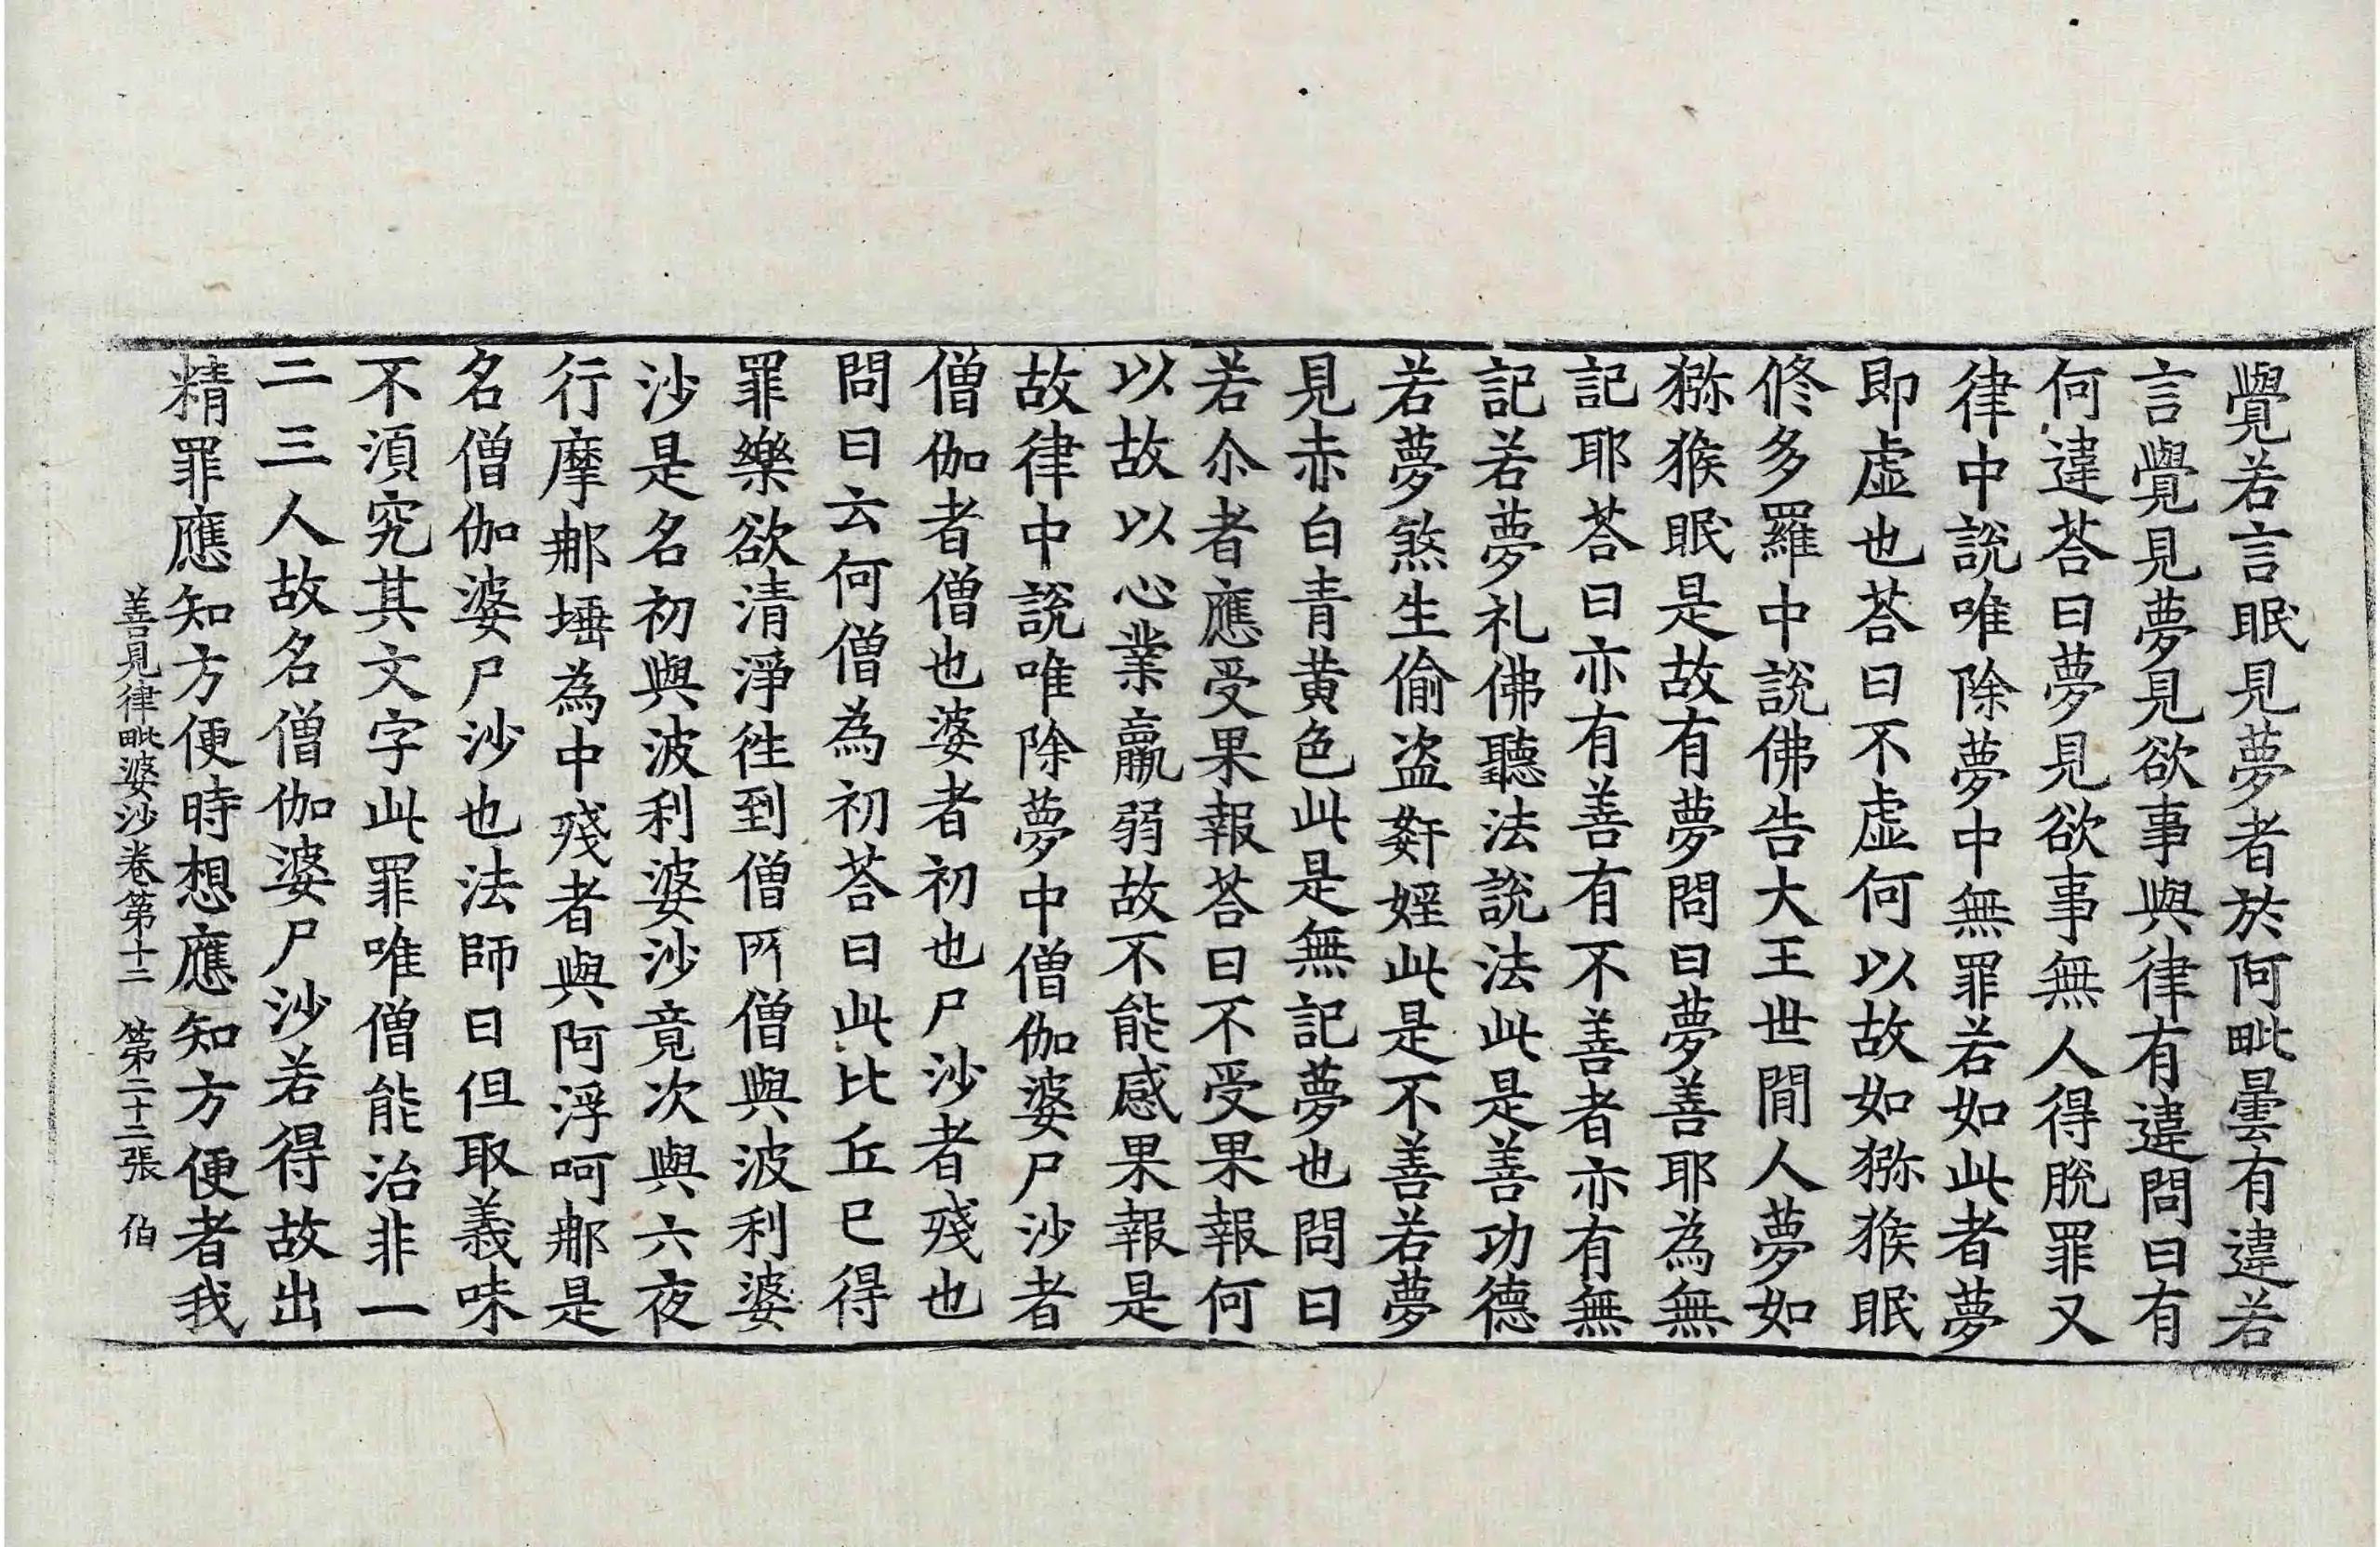 覺若言眠見夢者於阿毗曇有違若
言覺見夢見欲事與律有違問曰有
何違荅曰夢見欲事無人得脫罪又
律中說唯除夢中無罪若如此者夢
即虛也荅曰不虛何以故如猕猴眠
修多羅中說佛告大王世閒人夢如
猕猴眠是故有夢問曰夢善耶為無
記耶荅曰亦有善有不善者亦有無
記若夢礼佛聽法說法此是善功德
若夢煞生偷盗姧婬此是不善若夢
見赤白青黄色此是無記夢也問曰
若尒者應受果報荅曰不受果報何
以故以心業羸弱故不能感果報是
故律中說唯除夢中僧伽婆尸沙者
僧伽者僧也婆者初也尸沙者殘也
問曰云何僧為初荅曰此比丘已得
罪樂欲清淨徃到僧所僧與波利婆
沙是名初與波利婆沙竟次與六夜
行摩那埵為中殘者與阿浮呵那是
名僧伽婆尸沙也法師曰但取義味
不湏究其文字此罪唯僧能治非一
二三人故名僧伽婆尸沙若得故出
精罪應知方便時想應知方便者我
善見律毗婆沙卷第十二　第二十二張　伯